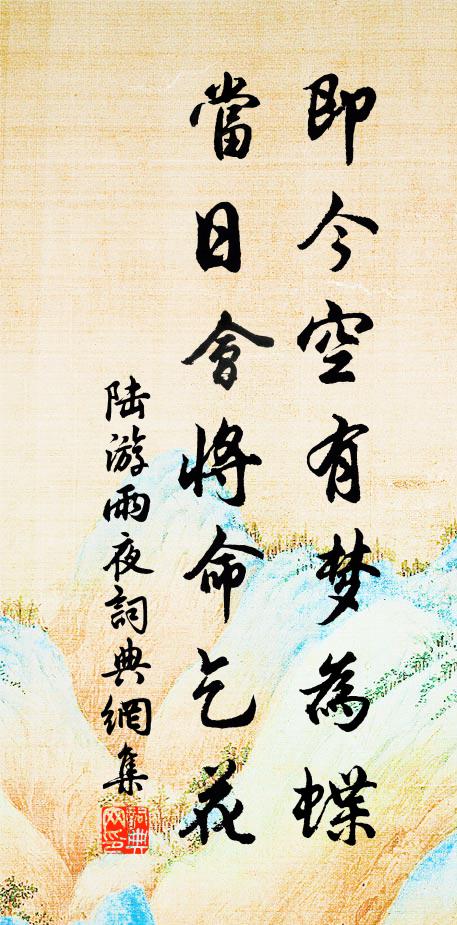 即今空有梦為蝶
當日會將命乞花
陸游雨夜詞典網集
詞典
网印